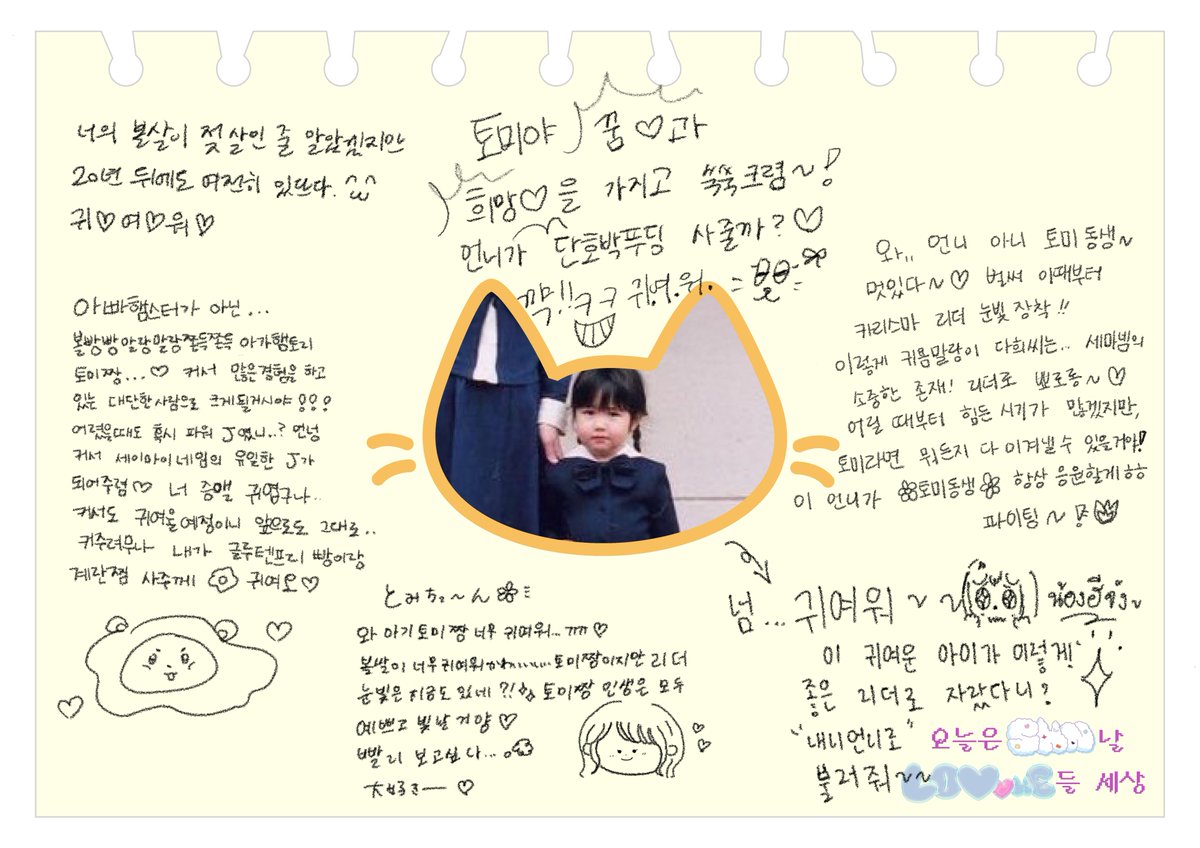 너의 볼살이 젖살인 줄 알았겠지만
20년 뒤에도 여전히 있뜨다.
귀♡여♡워♡
토미야 꿈♡과
희망♡을 가지고 쑥쑥크렴~!
언니가 단호박푸딩 사줄까?♡
꺅!!ㅋㅋ 귀.여.워.
아빠햄스터가 아닌...
볼빵빵말랑말랑쫀득쫀득 아가햄토리
토미짱...♡ 커서 많은경험을 하고
있는 대단한사람으로 크게될거시야
어렸을때도 혹시 파워 J였니..? 언넝
커서 세이마이네임의 유일한 J가
되어주렴♡ 너 증맬 귀엽구나..
커서도 귀여울예정이니 앞으로도 그대로..
커주려무나 내가 글루텐프리 빵이랑
계란찜 사주께 귀여오♡
와,, 언니 아니 토미동생~
멋있다~♡ 벌써 이때부터
카리스마 리더 눈빛장착!!
이렇게 귀욤말랑이 다희씨는.. 세마넴의
소중한 존재! 리더로 뽀로롱~♡
어릴 때부터 힘든 시기가 많겠지만,
토미라면 뭐든지 다 이겨낼 수 있을거야!
이 언니가 토미동생 항상 응원할게ㅎㅎ
파이팅~!
とみちゃ~ん
와 아기토미짱 너무 귀여워...ㄲㄲ♡
볼쌀이 너무귀여워 토미짱이지만 리더
눈빛은 지금도 있네?! 토미짱 인생은 모두
예쁘고 빛날거양♡
빨리 보고싶다...
大好きー♡
넘...귀여워~~ น้องฮีจัง~
이 귀여운 아이가 이렇게
좋은 리더로 자랐다니?
"내니언니로"
불러줘~~
오늘은 날
들 세상